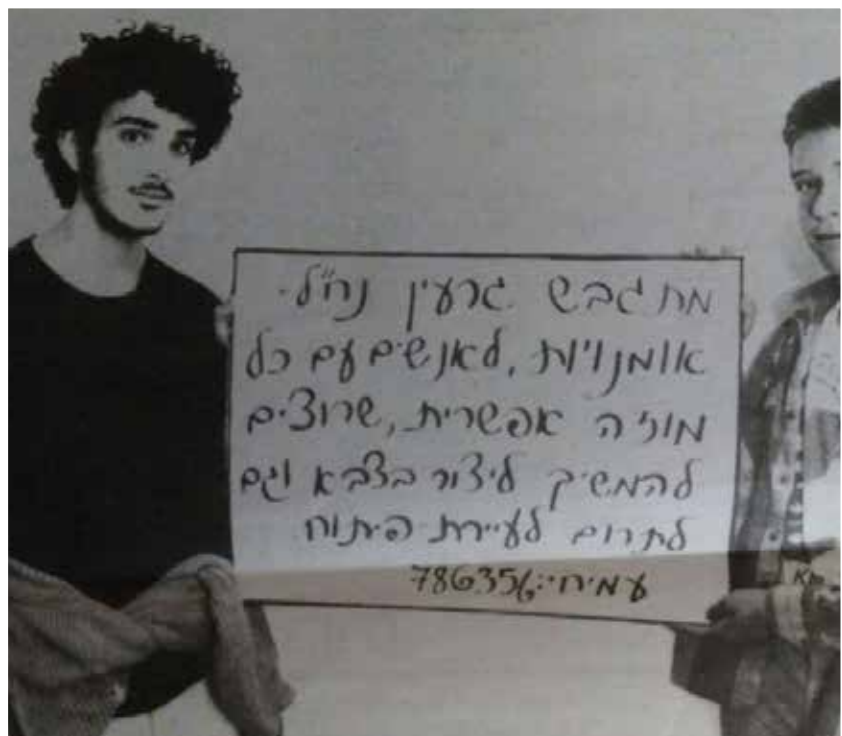 מתגבש גרעין נח"ל-
אומנויות, לאנשים עם כל
מוזה אפשרית, שרוצים
להמשיך ליצור בצבא וגם
לתרום לעיירת פיתוח
עמיחי: 786356